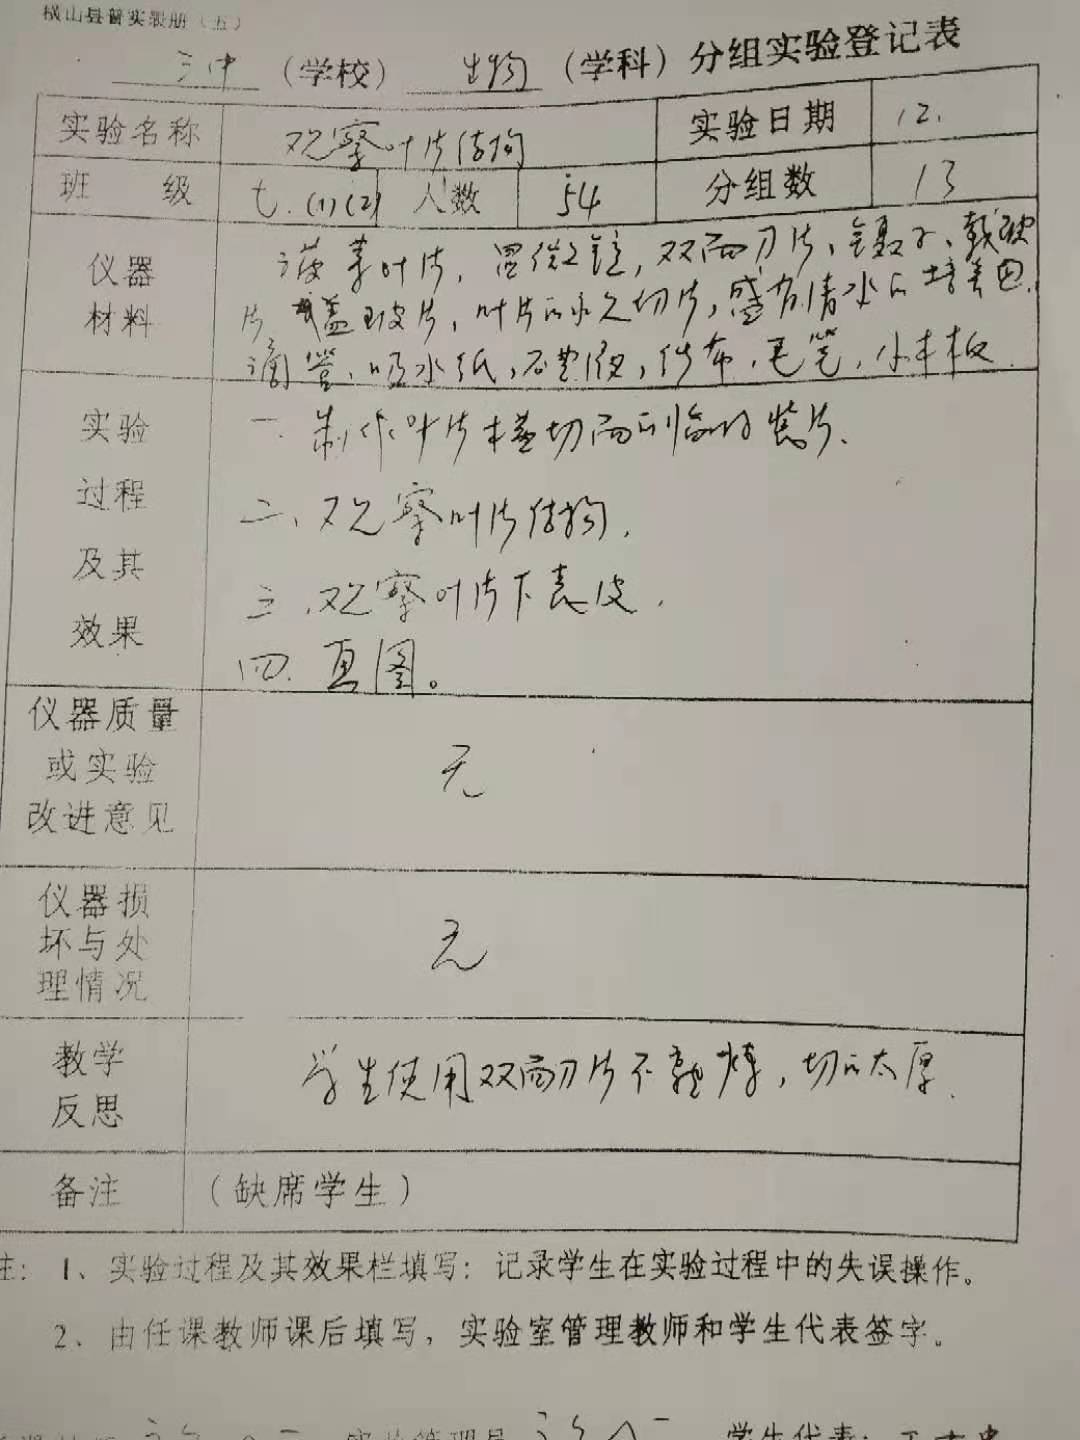 横山县普实表册（五）
三中（学校） 生物（学科）分组实验登记表
实验名称 观察叶片结构 实验日期 12.
班 级 七.(1)(2) 人数 54 分组数 13
仪器材料
菠菜叶片，显微镜，双面刀片、镊子、载玻
片，盖玻片，叶片的永久切片，盛有清水的培养皿，
滴管、吸水纸，碘液，纱布，毛笔，小木板.
实验过程及其效果
一.制作叶片横切面的临时装片.
二、观察叶片结构.
三.观察叶片下表皮.
四.画图。
仪器质量或实验改进意见
无
仪器损坏与处理情况
无
教学反思
学生使用双面刀片不熟悉，切的太厚.
备注 （缺席学生）
注：1、实验过程及其效果栏填写：记录学生在实验过程中的失误操作。
2、由任课教师课后填写，实验室管理教师和学生代表签字。
学生代表：